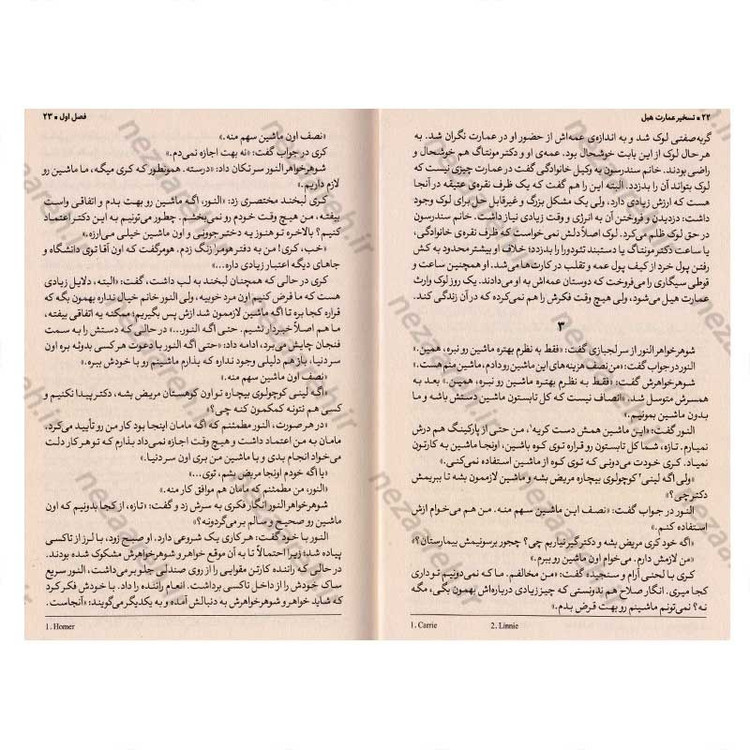 ۲۲ * تسخیر عمارت هیل
گریه‌صفتی لوک شد و به اندازه‌ی عمه‌اش از حضور او در عمارت نگران شد. به
هر حال لوک از این بابت خوشحال بود. عمه‌ی او و دکتر مونتاگ هم خوشحال و
راضی بودند. خانم سندرسون به وکیل خانوادگی گفت در عمارت چیزی نیست که
لوک بتواند آن را بدزدد. البته این را هم گفت که یک ظرف نقره‌ی عتیقه در آنجا
هست که ارزش زیادی دارد، ولی یک مشکل بزرگ و غیرقابل حل برای لوک وجود
داشت: دزدیدن و فروختن آن به انرژی و وقت زیادی نیاز داشت. خانم سندرسون
در حق لوک ظلم می‌کرد. لوک اصلاً دلش نمی‌خواست که ظرف نقره‌ی خانوادگی،
یا ساعت دکتر مونتاگ یا دستبند تئودورا را بدزدد؛ خلاف او بیشتر محدود به کش
رفتن پول خرد از کیف پول عمه و تقلب در کارت‌ها می‌شد. او همچنین ساعت و
قوطی سیگاری را می‌فروخت که دوستان عمه‌اش به او می‌دادند. یک روز لوک وارث
عمارت هیل می‌شود، ولی هیچ وقت فکرش را هم نمی‌کرده که در آن زندگی کند.
۳
شوهرخواهر النور از سر لجبازی گفت: «فقط به نظرم بهتره ماشین رو نبره، همین.»
النور در جواب گفت: «من نصف هزینه‌های این ماشین رو دادم، ماشین منم هست.»
شوهرخواهرش گفت: «فقط به نظرم بهتره ماشین رو نبره، همین.» بعد به
همسرش متوسل شد. «انصاف نیست که کل تابستون ماشین دستش باشه و ما
بدون ماشین بمونیم.»
النور گفت: «این ماشین همش دست کریه¹، من حتی از پارکینگ هم درش
نمیارم. تازه، شما کل تابستون رو قراره توی کوه باشین، اونجا ماشین به کارتون
نمیاد. کری خودت می‌دونی که توی کوه از ماشین استفاده نمی‌کنی.»
«ولی اگه لینی² کوچولوی بیچاره مریض بشه و ماشین لازممون بشه تا ببریمش
دکتر چی؟»
النور در جواب گفت: «نصف این ماشین سهم منه. من هم می‌خوام ازش
استفاده کنم.»
«اگه خود کری مریض بشه و دکتر گیر نیاریم چی؟ چجور برسونیمش بیمارستان؟»
«من لازمش دارم. می‌خوام اون ماشین رو ببرم.»
کری با لحنی آرام و سنجیده گفت: «من مخالفم. ما که نمی‌دونیم تو داری
کجا میری. انگار صلاح هم ندونستی که چیز زیادی درباره‌اش بهمون بگی، مگه
نه؟ نمی‌تونم ماشینم رو بهت قرض بدم.»
1. Carrie 2. Linnie
فصل اول * ۲۳
«نصف اون ماشین سهم منه.»
کری در جواب گفت: «نه بهت اجازه نمی‌دم.»
شوهرخواهر النور سر تکان داد: «درسته. همونطور که کری میگه، ما ماشین رو
لازم داریم.»
کری لبخند مختصری زد: «النور، اگه ماشین رو بهت بدم و اتفاقی واست
بیفته، من هیچ وقت خودم رو نمی‌بخشم. چطور می‌تونیم به این دکتر اعتماد
کنیم؟ بالاخره تو هنوز یه دختر جوونی و اون ماشین خیلی می‌ارزه.»
«خب، کری! من به دفتر هومر¹ زنگ زدم. هومر گفت که اون آقا توی دانشگاه و
جاهای دیگه اعتبار زیادی داره...»
کری در حالی که همچنان لبخند به لب داشت، گفت: «البته، دلایل زیادی
هست که ما فرض کنیم اون مرد خوبیه، ولی النور خانم خیال نداره بهمون بگه که
قراره کجا بره تا اگه ماشین لازممون شد ازش پس بگیریم؛ ممکنه یه اتفاقی بیفته،
ما هم اصلاً خبردار نشیم. حتی اگه النور...» در حالی که دستش را به سمت
فنجان چایش می‌برد، ادامه داد: «حتی اگه النور با دعوت هر کسی بدونه بره اون
سر دنیا، باز هم دلیلی وجود نداره که بذارم ماشینم رو با خودش ببره.»
«نصف اون ماشین سهم منه.»
«اگه لینی کوچولوی بیچاره تو اون کوهستان مریض بشه، دکتر پیدا نکنیم و
کسی هم نتونه کمکمون کنه چی؟»
«در هر صورت، النور مطمئنم که اگه مامان اینجا بود کار من رو تأیید می‌کرد.
مامان به من اعتماد داشت و هیچ وقت اجازه نمی‌داد بذارم که تو هر کار دلت
می‌خواد انجام بدی و با ماشین من بری اون سر دنیا.»
«یا اگه خودم اونجا مریض بشم، توی...»
«النور، من مطمئنم که مامان هم موافق کار منه.»
شوهرخواهر النور انگار فکری به سرش زد و گفت: «تازه، از کجا بدونیم که اون
ماشین رو صحیح و سالم بر می‌گردونه؟»
النور با خود گفت: هر کاری یک شروعی دارد. او صبح زود، با لرز از تاکسی
پیاده شد؛ زیرا احتمالاً تا به آن موقع خواهر و شوهرخواهرش مشکوک شده بودند.
در حالی که راننده کارتن مقوایی را از روی صندلی جلو بر می‌داشت، النور سریع
ساک خودش را از داخل تاکسی برداشت. انعام راننده را داد. با خودش فکر کرد
که شاید خواهر و شوهرخواهرش به دنبالش آمده و به یکدیگر می‌گویند: «آنجاست.
1. Homer
nezaareh.ir